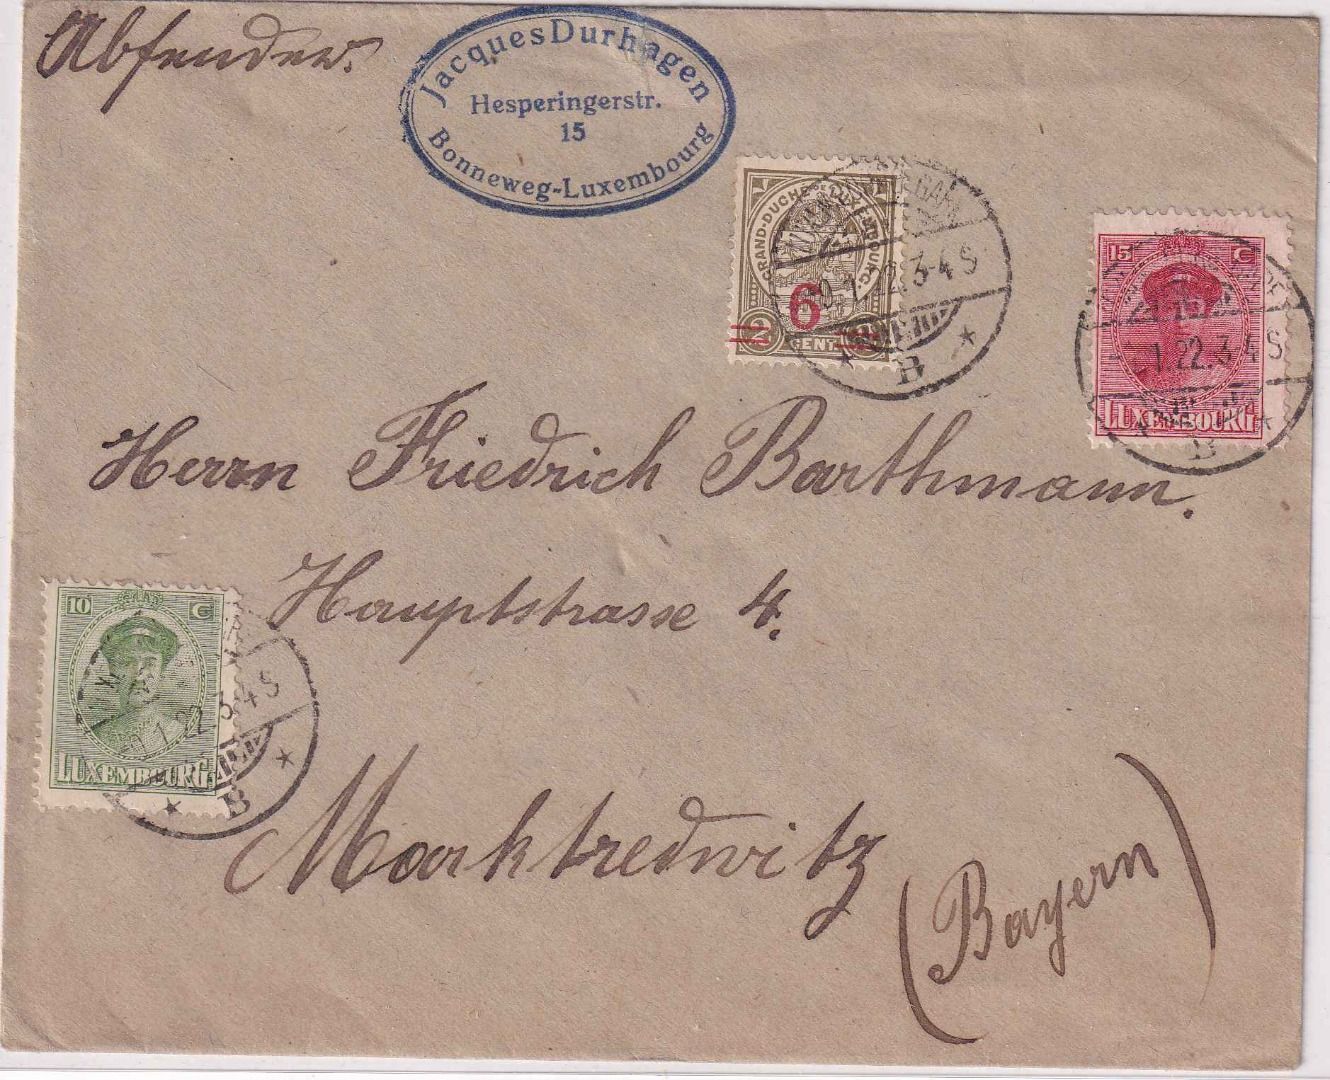 Absender.
Jacques Durhagen
Hesperingerstr.
15
Bonneweg-Luxembourg
GRAND-DUCHÉ DE LUXEMBOURG
6
2
CENT.
22.3-4 S
B
15 C
LUXEMBOURG
1.22.3-4 S
B
Herrn Friedrich Barthmann.
Hauptstrasse 4.
10 C
LUXEMBOURG
1.22.3-4 S
B
Marktredwitz
(Bayern)